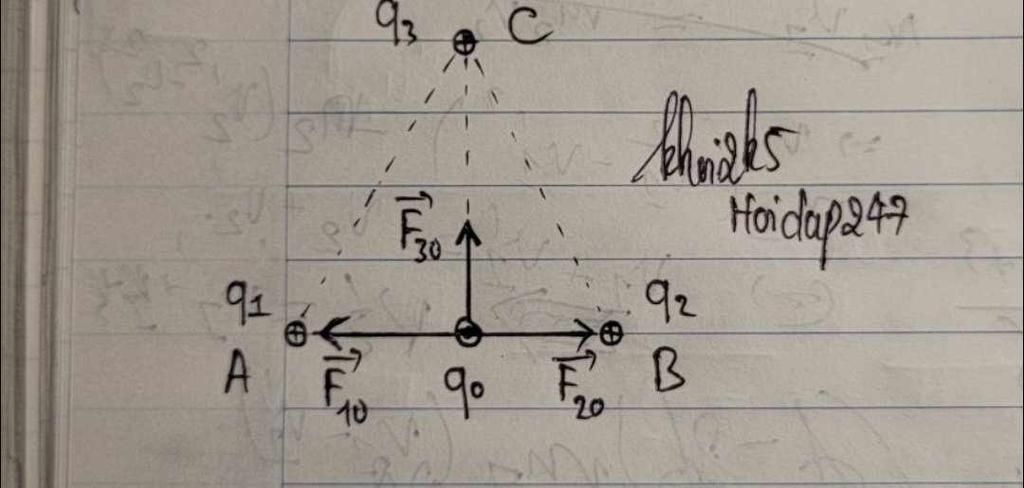 q3 C
khoi2k5
Hoidap247
F30
q1 q2
A F10 q0 F20 B